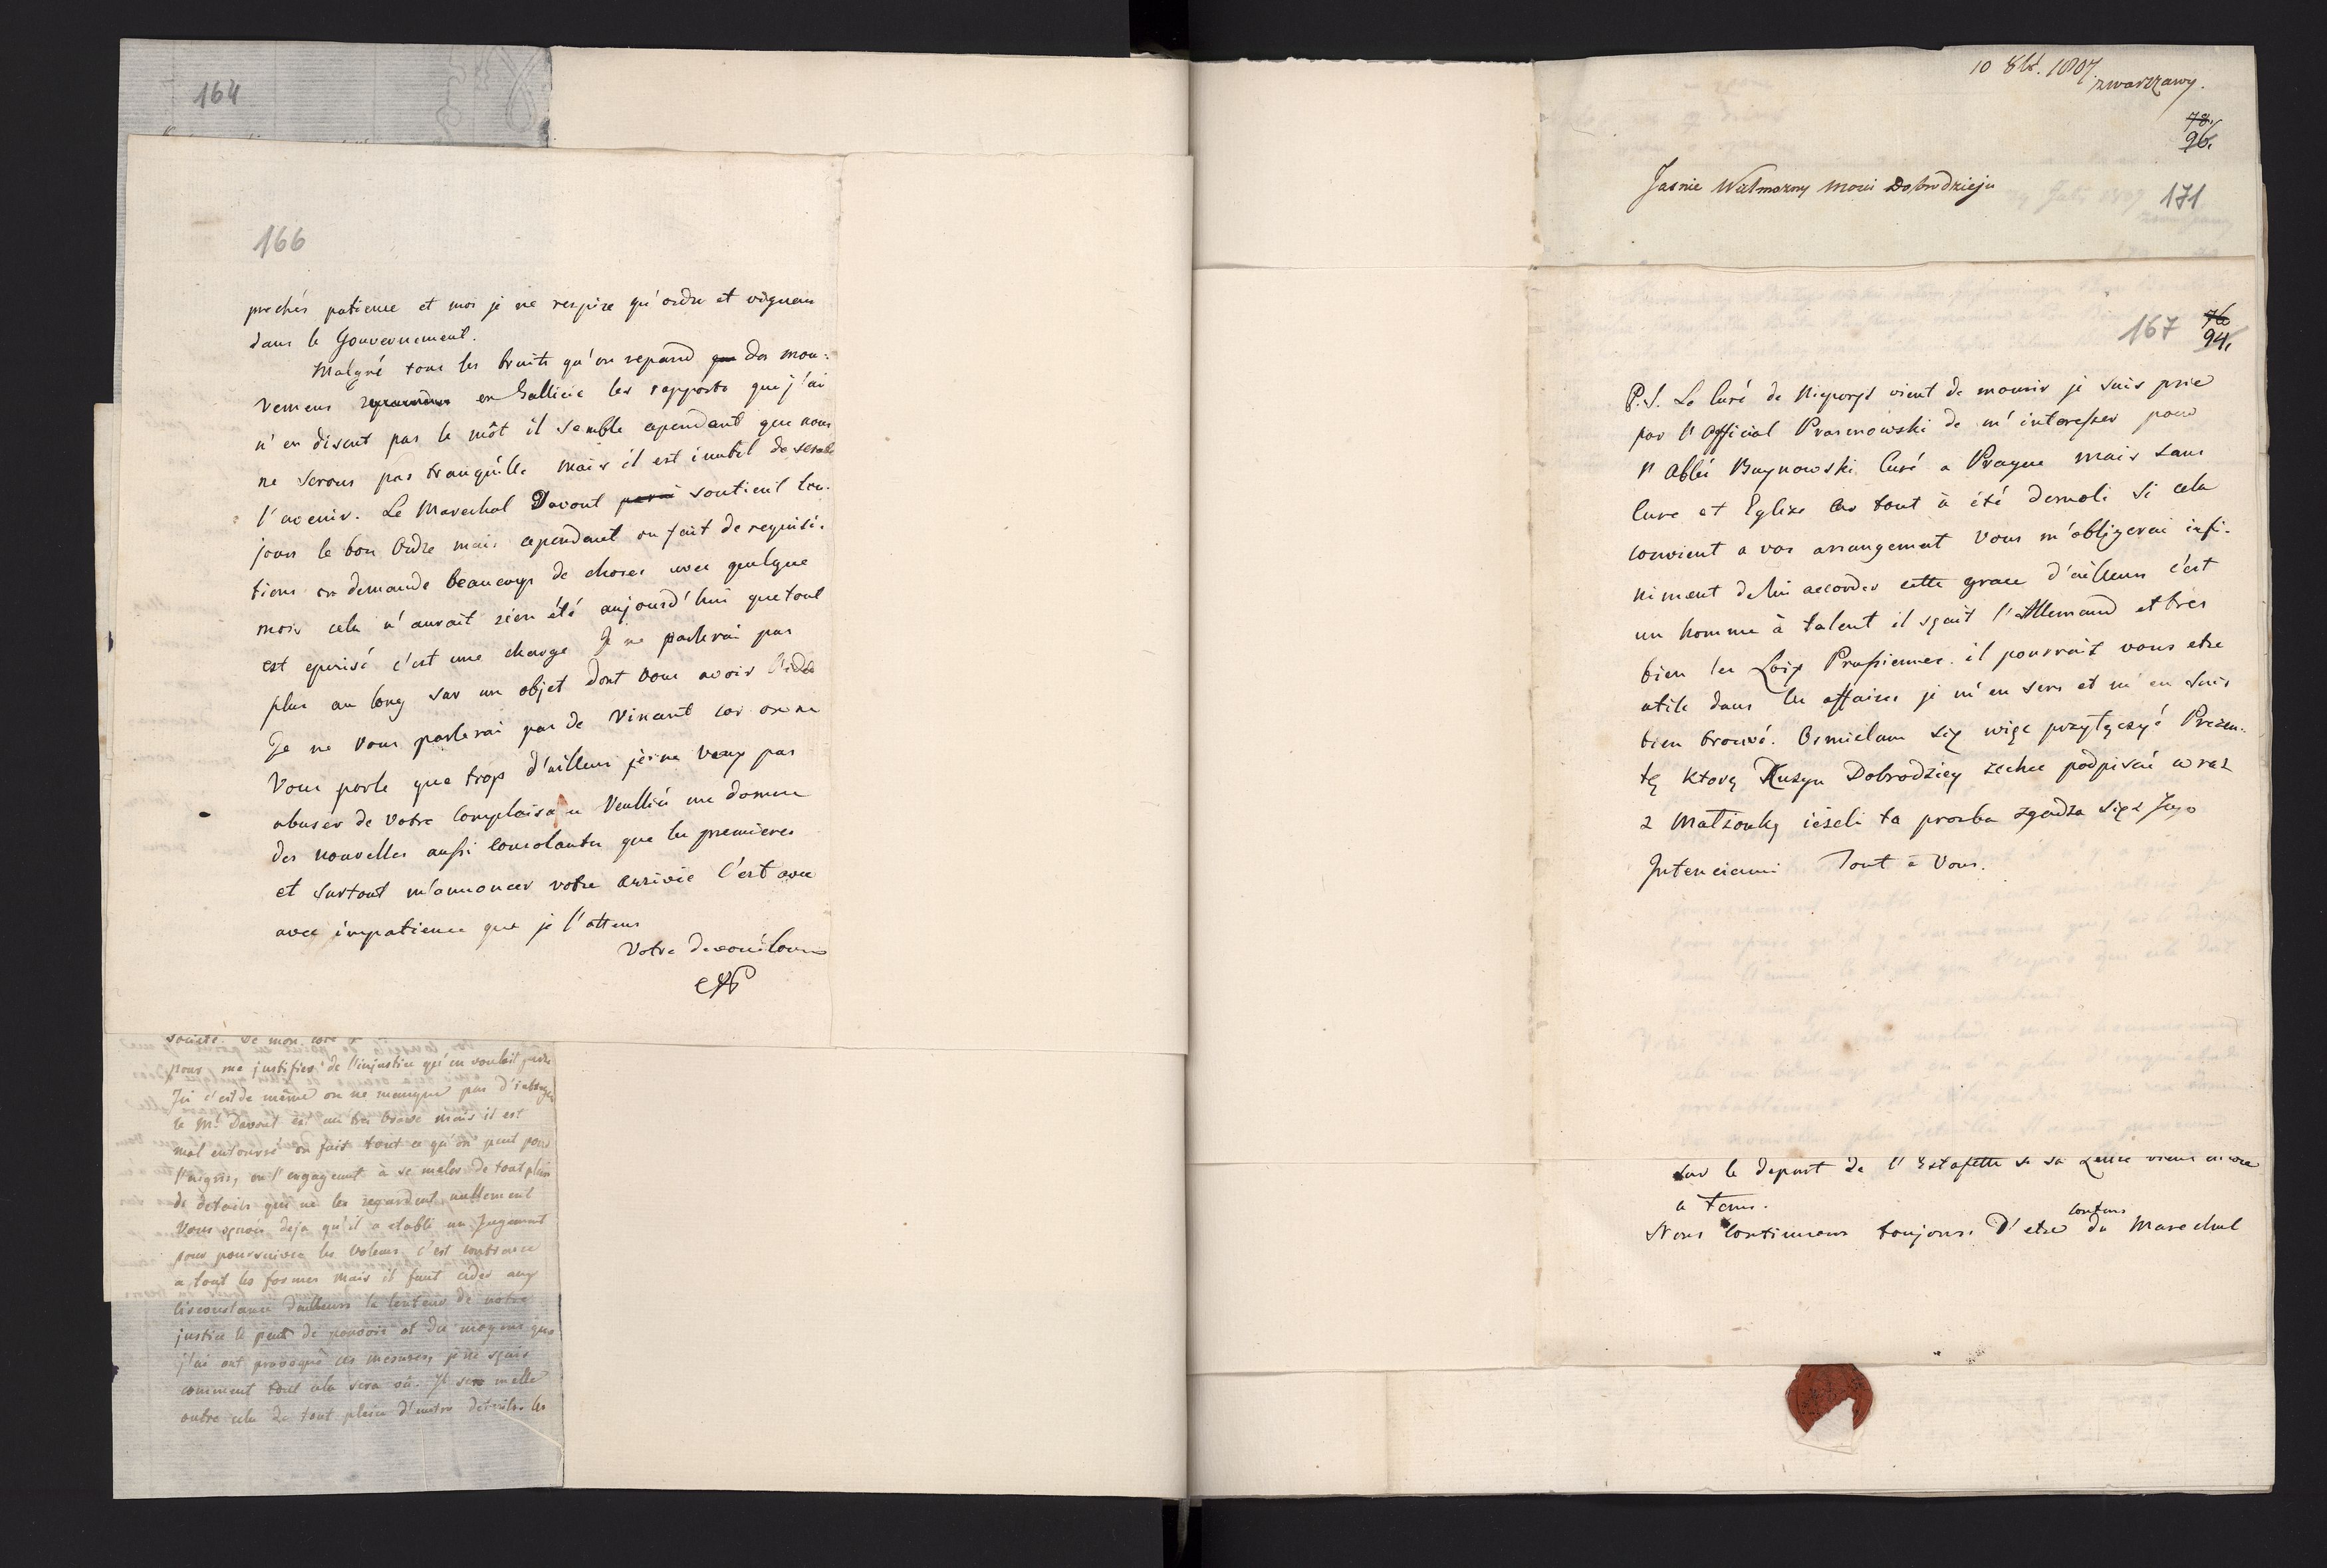 164
166
prechés patience et moi je ne respire qu'ordre et vigueur
dans le Gouvernement.
Malgré tous les bruits qu'on repand que des mou-
vemens en Gallicie les rapports que j'ai
n'en disent pas le môt il semble cependant que nous
ne serons pas tranquille mais il est inutil de
l'avenir. Le Marechal Davout soutient tou-
jours le bon Ordre mais cependant on fait de requisi-
tions on demande beaucoup de choses avec quelque
mois cela n'aurait rien été aujourd'hui que tout
est epuisé c'est une charge Je ne parlerai pas
plus au long sur un objet dont vous avoir l'idée
Je ne vous parlerai pas de Vincent car on ne
Vous parle que trop d'ailleurs je ne veux pas
abuser de votre Complaisance Veulliés me donner
des nouvelles aussi consolantes que les premieres
et surtout m'annoncer votre arrivée C'est avec
avec impatience que je l'attens
Votre devoué
societé. De mon coté
pour me justifier de l'injustice qu'on voulait
Ici c'est de même on ne manque pas d'
le Ml Davout est un tres brave mais il est
mal entourré on fait tout ce qu'on peut pour
l'aigrir, en l'engageant à se meler de tout plein
de details qui ne les regardent nullement
Vous sçavés deja qu'il a etabli un Jugement
pour poursuivre les voleurs c'est contraire
a tout les formes mais il faut ceder aux
circonstance d'ailleurs la lenteur de notre
justice le peu de pouvoir et des moyens que
j'ai ont provoqué ces mesures, je ne sçais
comment tout cela sera où. Il se melle
outre cela de tout plein d'autre details les
10 8br. 1807 z warszawy.
78.
96.
Jasnie Wielmozny Mosci Dobrodzieju
171
167
76
94.
P.S. Le Curé de Nieporęt vient de mourir je suis prie
par l'Official Prasmowski de m'interesser pour
l'Abbé Buynowski Curé a Prague mais sans
Cure et Eglise car tout à été demoli si cela
convient a vos arrangement Vous m'obligerai infi-
niment de lui accorder cette grace d'ailleurs c'est
un homme à talent il sçait l'Allemand et tres
bien les Loix Prussiennes il pourrait vous etre
utile dans les affaires je m'en sers et m'en suis
bien trouvé. Osmielam się więc przyłączyć Prezen-
tę ktorą Kuzyn Dobrodziey zechce podpisać wraz
z Małżonką ieżeli ta prozba zgadza się z Jego
Intenciami Tout à Vous.
sur le depart de l'Estafette si sa Lettre vient encore
a tems.
contens
Nous continuons toujours d'etre du Marechal